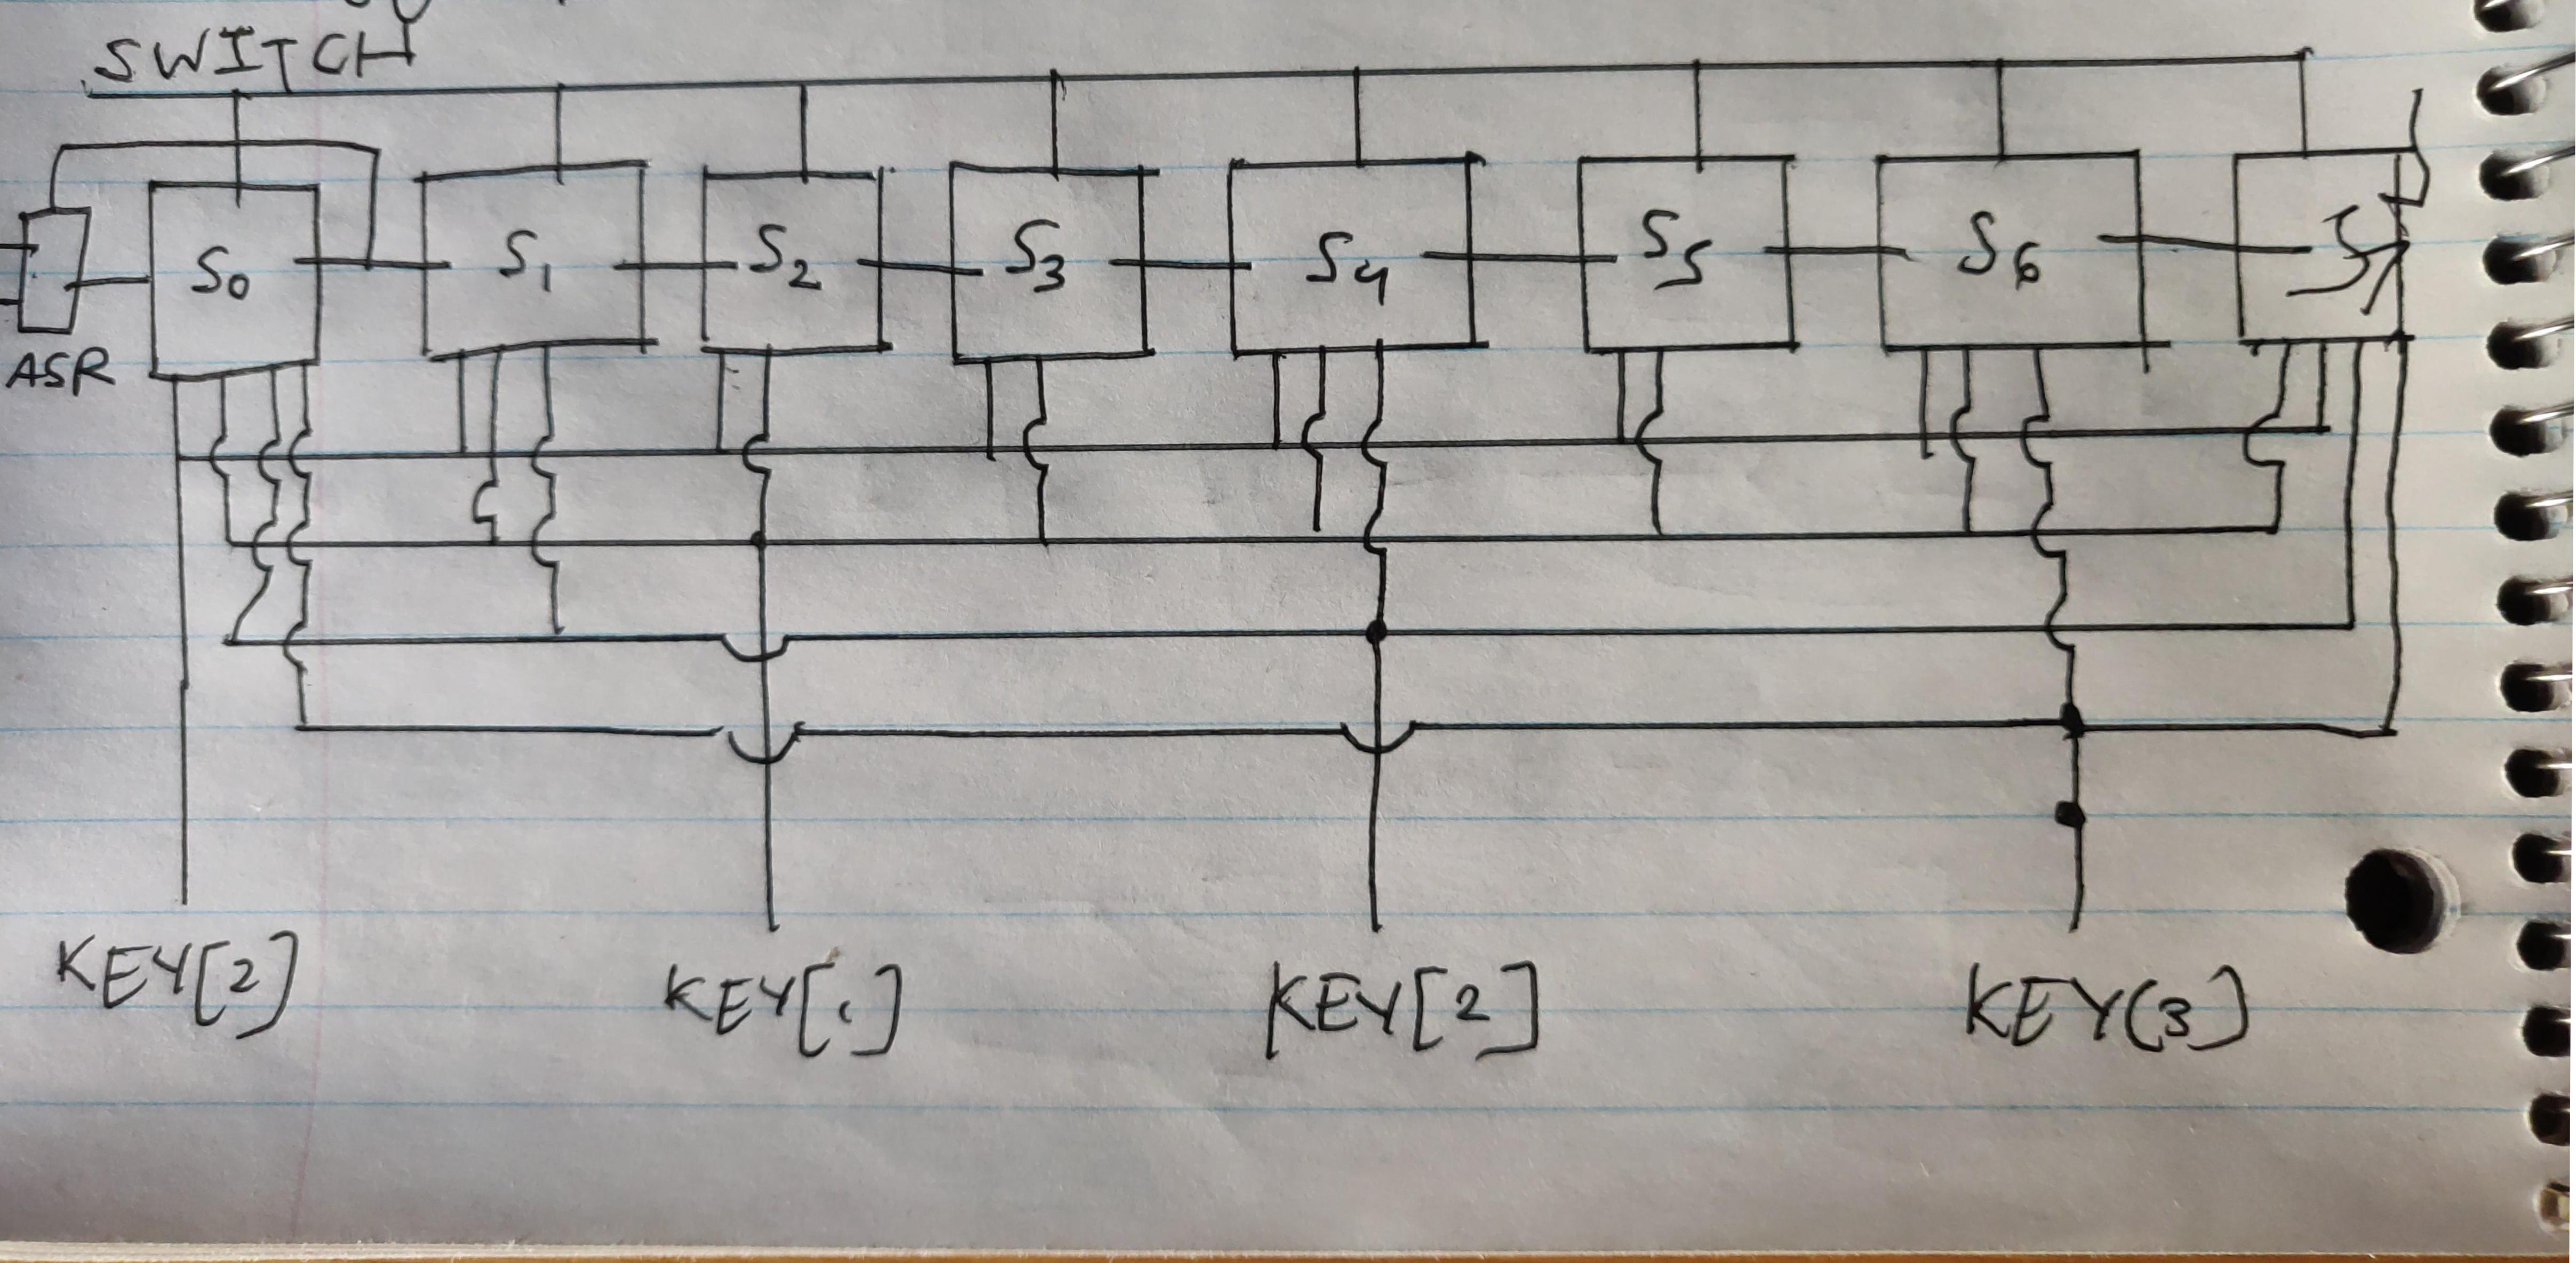 SWITCH
S0 S1 S2 S3 S4 S5 S6 S7
ASR
KEY[2] KEY[1] KEY[2] KEY(3)